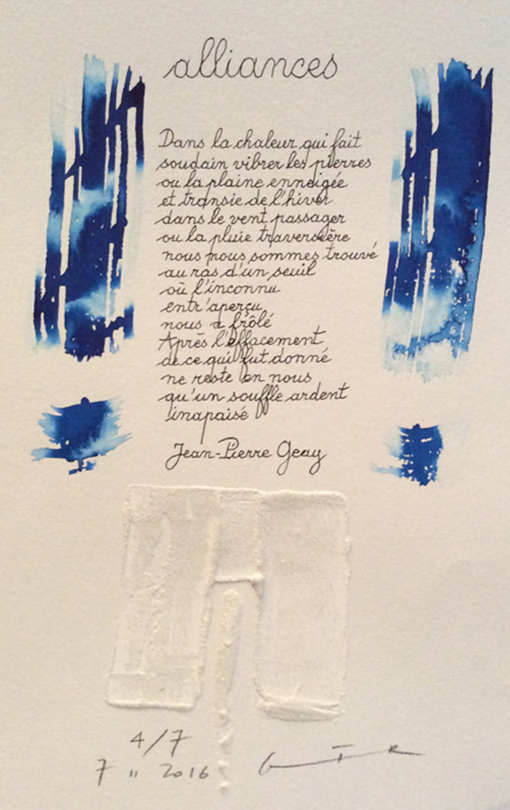 alliances
Dans la chaleur qui fait
soudain vibrer les pierres
ou la plaine enneigée
et transie de l'hiver
dans le vent passager
ou la pluie traversière
nous nous sommes trouvé
au ras d'un seuil
où l'inconnu
entr'aperçu
nous a frôlé
Après l'effacement
de ce qui fut donné
ne reste en nous
qu'un souffle ardent
inapaisé
Jean-Pierre Geay
4/7
7 11 2016